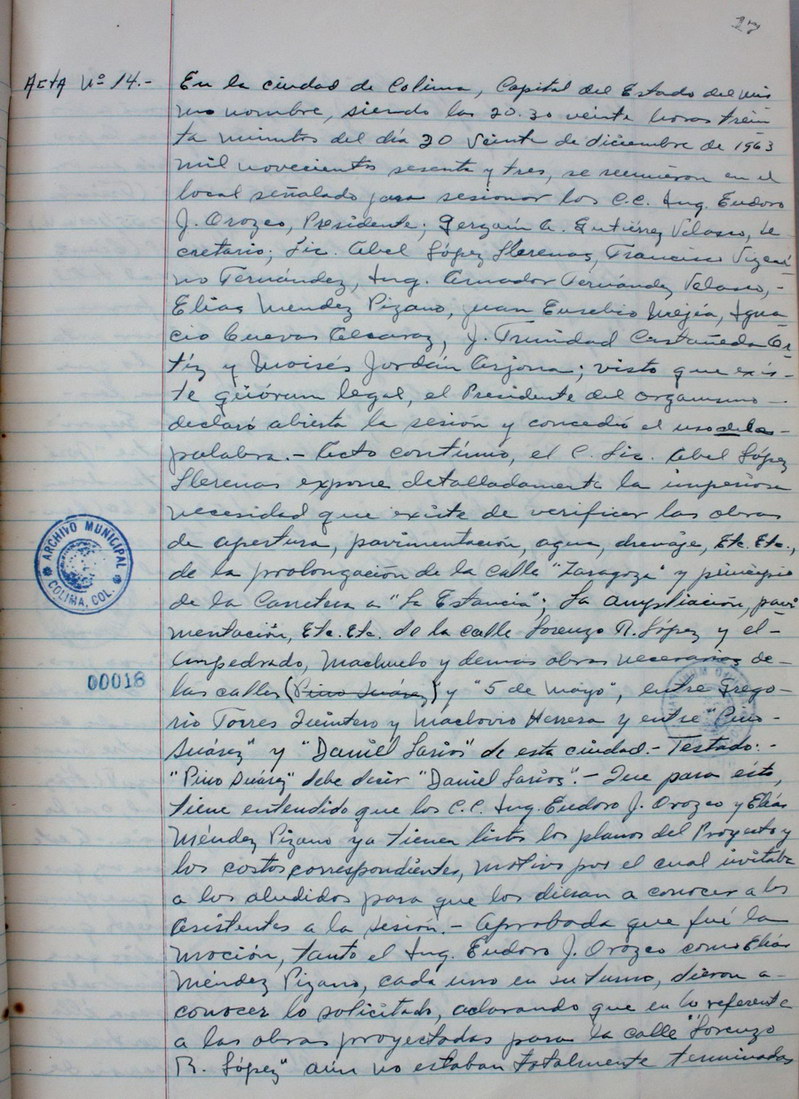 27
Acta Nº 14.- En la ciudad de Colima, Capital del Estado del mis
mo nombre, siendo las 20.30 veinte horas trein
ta minutos del día 20 veinte de diciembre de 1963
mil novecientos sesenta y tres, se reunieron en el
local señalado para sesionar los C.C. Ing. Eudoro
J. Orozco, Presidente; Gergaín G. Gutiérrez Velasco, Se
cretario; Lic. Abel López Llerenas, Francisco Vizcaí
no Fernández, Ing. Amador Fernández Velasco, -
Elías Mendez Pizano, Juan Eusebio Mejía, Igna
cio Cuevas Alcaraz, J. Trinidad Castañeda Or-
tíz y Moisés Jordán Arjona; visto que exis-
te qüórum legal, el Presidente del organismo -
declaró abierta la sesión y concedió el uso de la -
palabra.- Acto contínuo, el C. Lic. Abel López
Llerenas expone detalladamente la imperiosa
necesidad que existe de verificar las obras
de apertura, pavimentación, agua, drenaje, Etc. Etc.,
de la prolongación de la calle "Zaragoza" y principio
de la Carretera a "La Estancia"; La ampliación, pavi
mentación, Etc. Etc. de la calle Lorenzo R. López y el -
empedrado, machuelo y demás obras necesarias de -
las calles (Pino Suárez) y "5 de Mayo", entre Grego-
rio Torres Quintero y Maclovio Herrera y entre "Pino -
Suárez" y "Daniel Larios" de esta ciudad.- Testado: -
"Pino Suárez" debe decir "Daniel Larios".- Que para esto,
tiene entendido que los C.C. Ing. Eudoro J. Orozco y Elías
Méndez Pizano ya tienen listos los planos del Proyecto y
los costos correspondientes, motivo por el cual invitaba
a los aludidos para que los dieran a conocer a los
asistentes a la sesión.- Aprobada que fué la
moción, tanto el Ing. Eudoro J. Orozco como Elías
Méndez Pizano, cada uno en su turno, dieron a -
conocer lo solicitado, aclarando que en lo referente
a las obras proyectadas para la calle "Lorenzo
R. López" aún no estaban totalmente terminados
ARCHIVO MUNICIPAL
COLIMA, COL.
00018